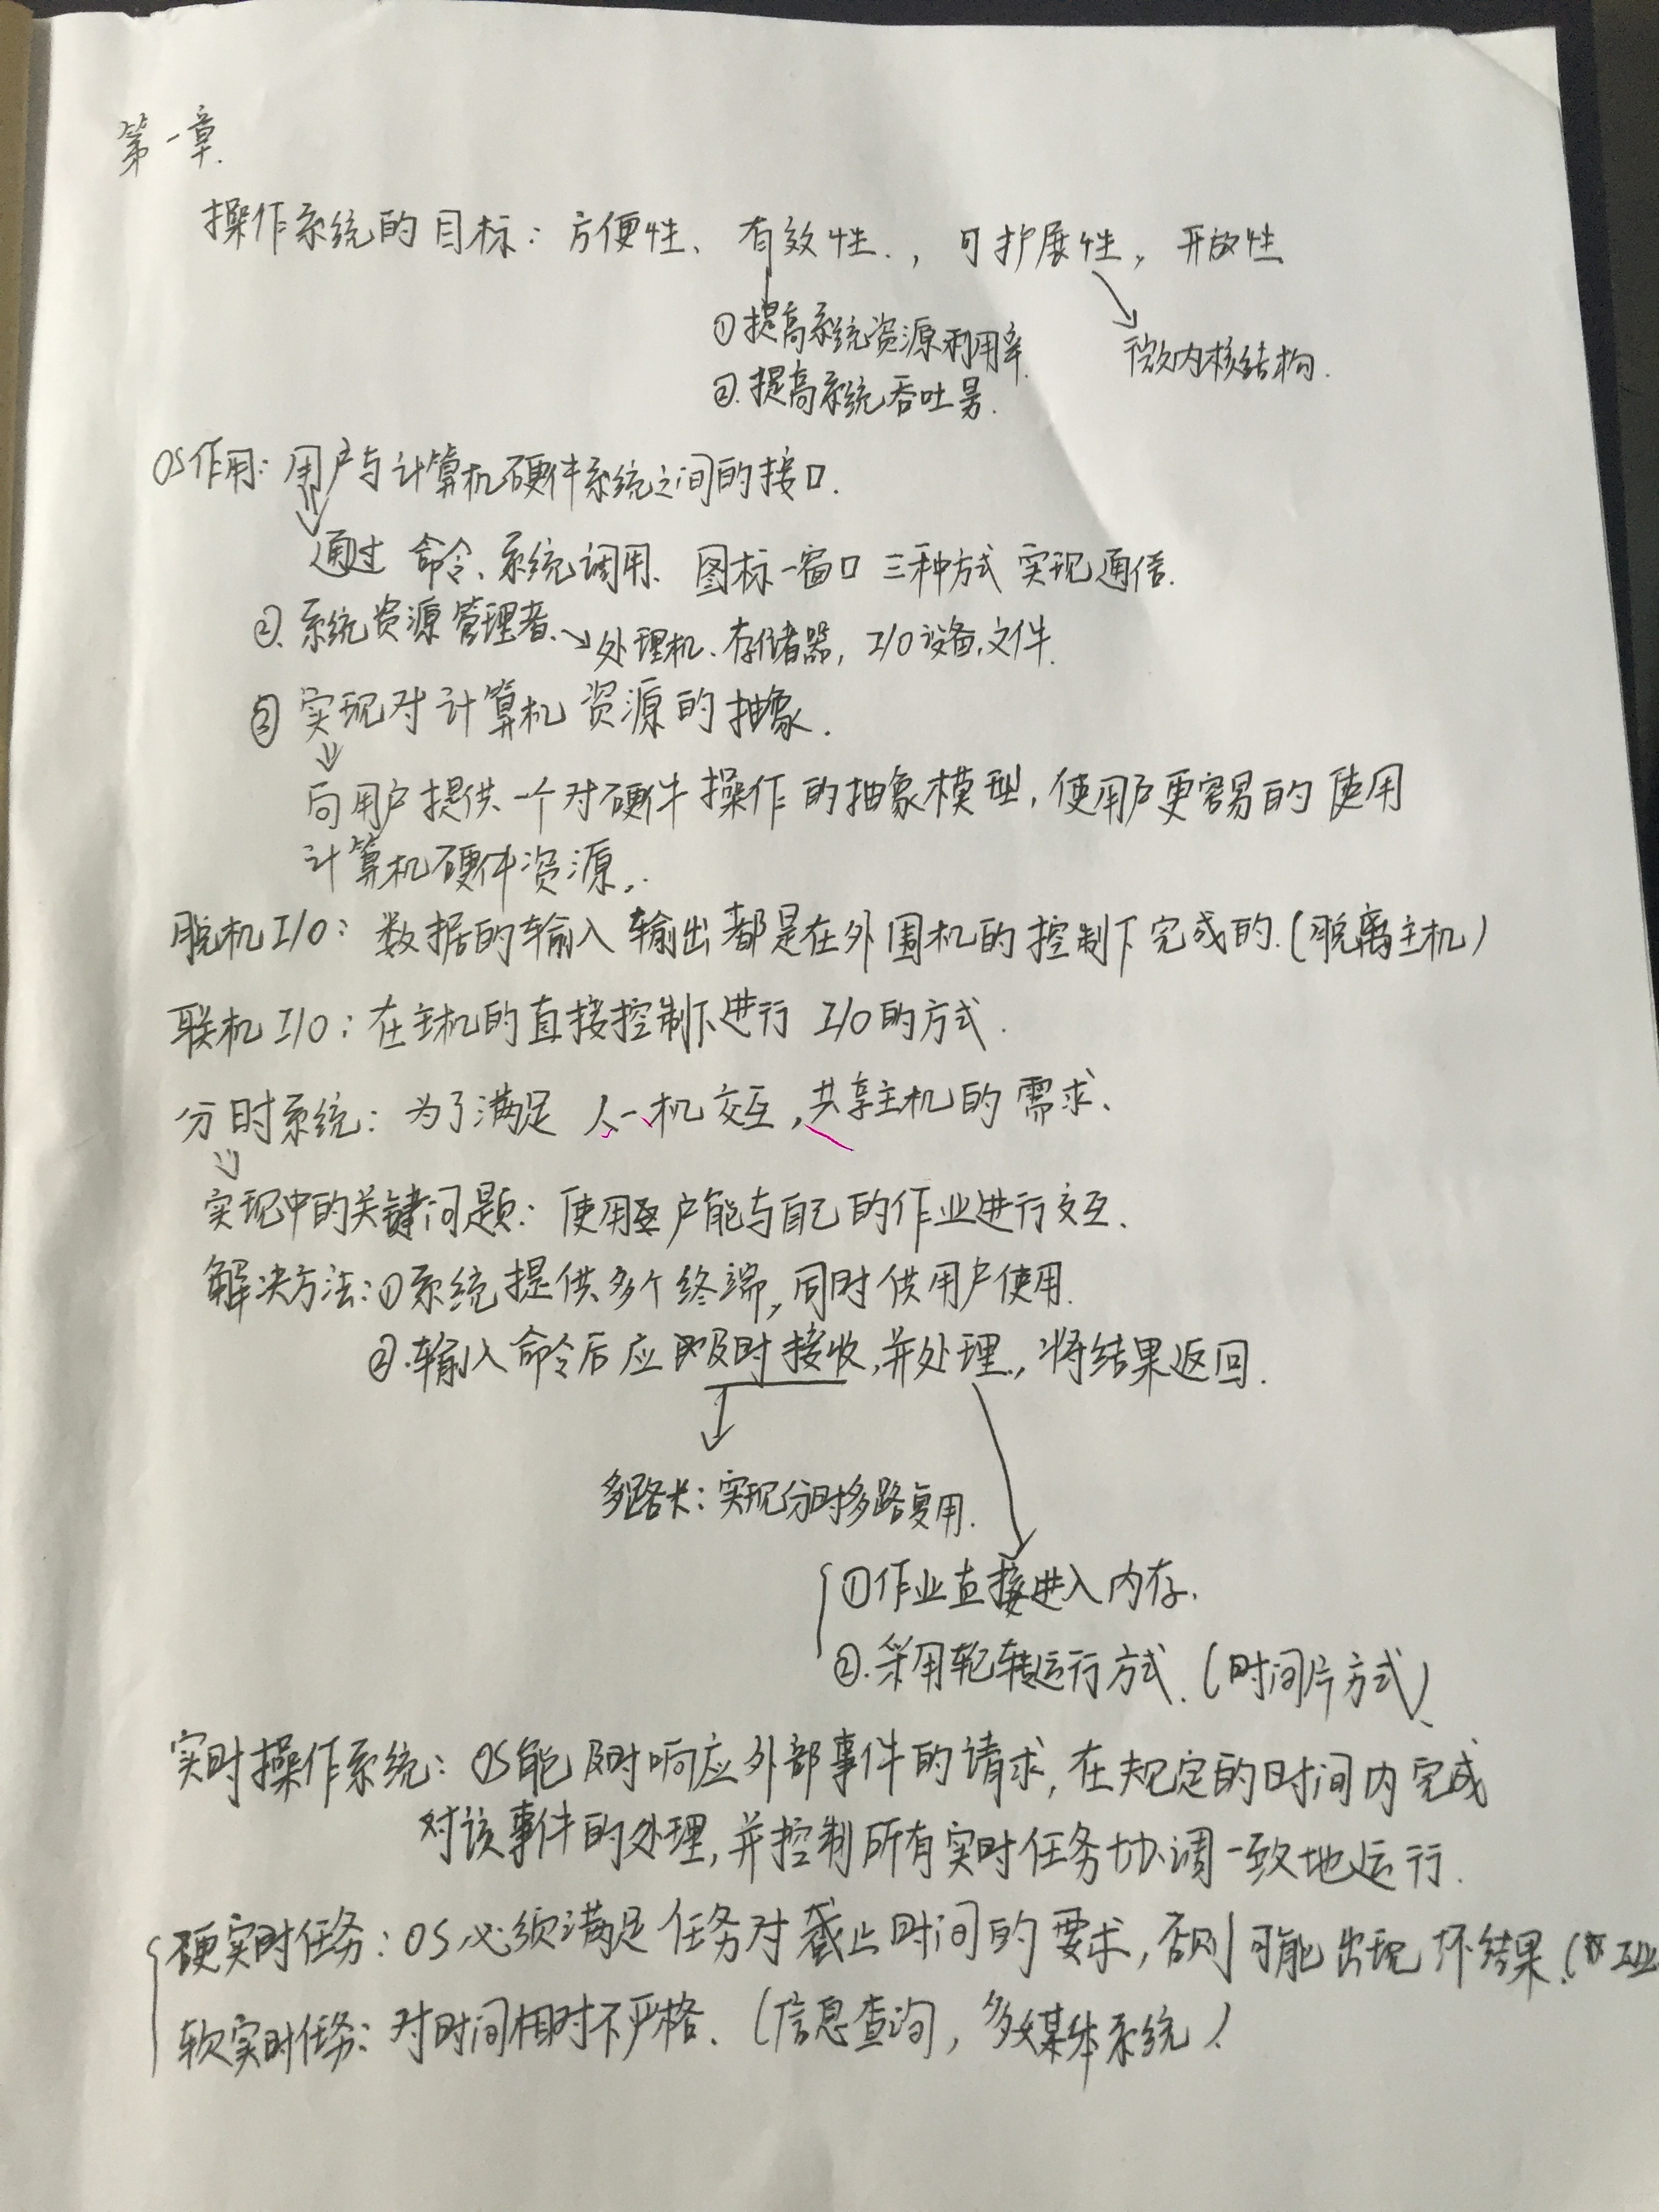 第一章.
操作系统的目标: 方便性、有效性., 可扩展性, 开放性
①提高系统资源利用率.
②.提高系统吞吐量.
微内核结构.
OS作用: 用户与计算机硬件系统之间的接口.
通过 命令、系统调用、图标-窗口 三种方式 实现通信.
②.系统资源管理者. 处理机、存储器, I/O设备,文件.
③实现对计算机资源的抽象.
向用户提供一个对硬件操作的抽象模型,使用户更容易的使用
计算机硬件资源.
脱机I/O: 数据的输入输出都是在外围机的控制下完成的.(脱离主机)
联机I/O: 在主机的直接控制下进行 I/O的方式.
分时系统: 为了满足 人一机交互,共享主机的需求、
实现中的关键问题: 使用户能与自己的作业进行交互.
解决方法:①系统提供多个终端,同时供用户使用.
②.输入命令后应及时接收,并处理,将结果返回.
多路卡: 实现分时多路复用.
①作业直接进入内存.
②.采用轮转运行方式.(时间片方式)
实时操作系统: OS能及时响应外部事件的请求,在规定的时间内完成
对该事件的处理,并控制所有实时任务协调一致地运行.
硬实时任务: OS必须满足任务对截止时间的要求,否则可能出现坏结果.(
软实时任务: 对时间相对不严格.(信息查询,多媒体系统)